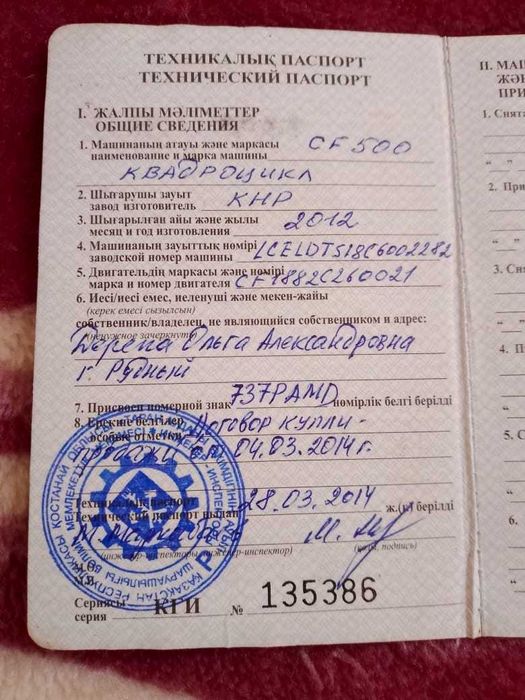 ТЕХНИКАЛЫҚ ПАСПОРТ
ТЕХНИЧЕСКИЙ ПАСПОРТ
I. ЖАЛПЫ МӘЛІМЕТТЕР
ОБЩИЕ СВЕДЕНИЯ
1. Машинаның атауы және маркасы
наименование и марка машины CF 500
КВАДРОЦИКЛ
2. Шығарушы зауыт
завод изготовитель КНР
3. Шығарылған айы және жылы
месяц и год изготовления 2012
4. Машинаның зауыттық нөмірі
заводской номер машины LCELDTS18C6002282
5. Двигательдің маркасы және нөмірі
марка и номер двигателя CF1882C260021
6. Иесі/несі емес, иеленуші және мекен-жайы
(керек емесі сызылсын)
собственник/владелец, не являющийся собственником и адрес:
(ненужное зачеркнуть)
Ольга Александровна
г. Рудный
7. Присвоен номерной знак 737PAMD нөмірлік белгі берілді
8. Ерекше белгілер
особые отметки Договор купли-
продажи от 04.03.2014 г.
Техникалық паспорт
Технический паспорт выдан 28.03.2014 ж.(г) берілді
(инженер-инспекторы, инженер-инспектор) (қолы, подпись)
М.О.
М.П.
Сериясы
серия КГИ № 135386
II. МАШ
ЖӘН
ПРИ
1. Снята
2. При
3. Сн
4. П
5.